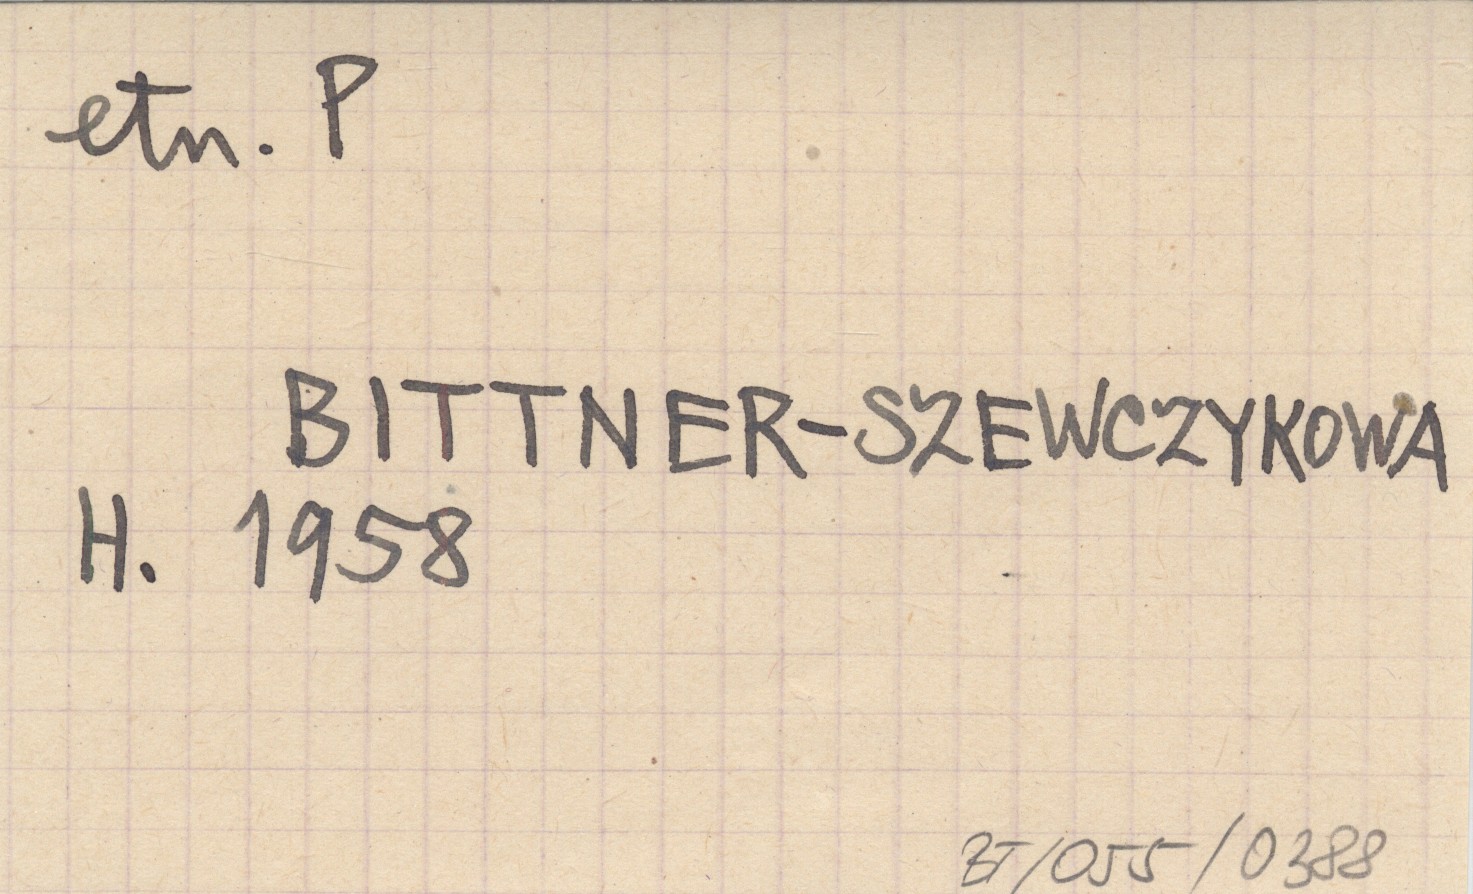 etn. P
BITTNER-SZEWCZYKOWA
H. 1958
BT/055/0388